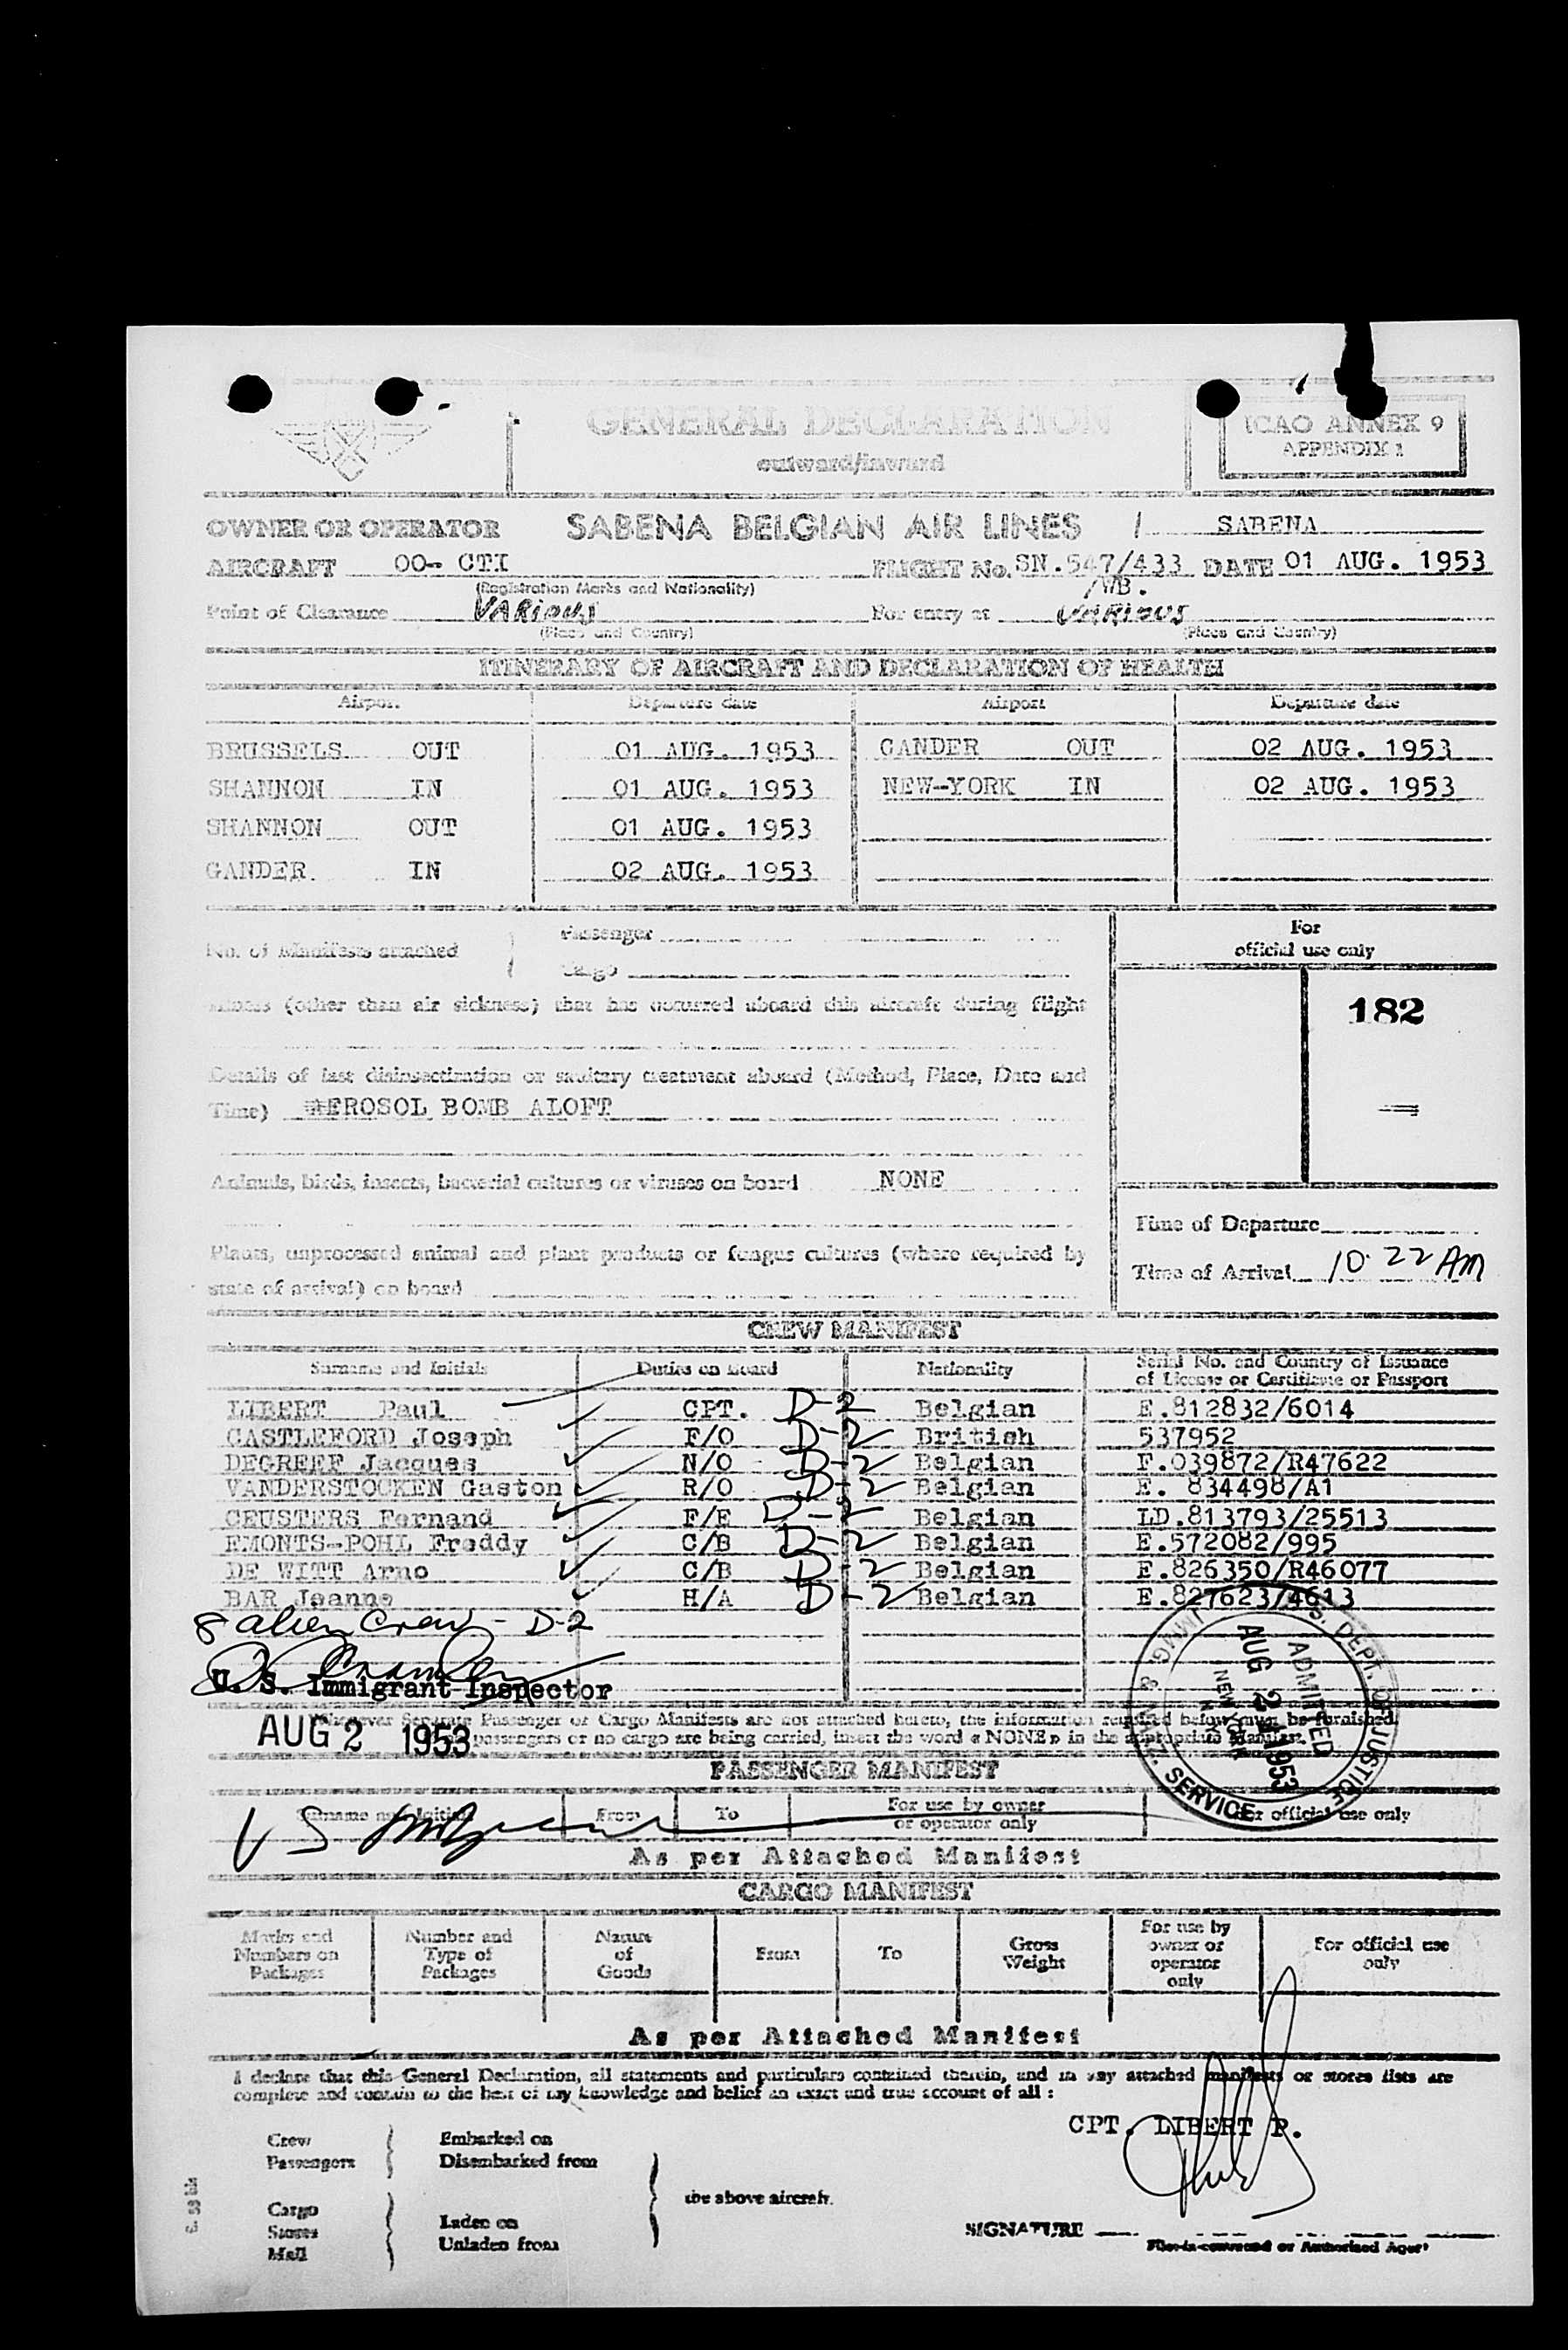 GENERAL DECLARATION
outward/inward
ICAO ANNEX 9
APPENDIX 1
OWNER OR OPERATOR SABENA BELGIAN AIR LINES / SABENA
AIRCRAFT OO- CTI FLIGHT No. SN.547/433 DATE 01 AUG. 1953
(Registration Marks and Nationality) /WB.
Point of Clearance VARIOUS For entry at VARIOUS
(Place and Country) (Place and Country)
ITINERARY OF AIRCRAFT AND DECLARATION OF HEALTH
Airport Departure date Airport Departure date
BRUSSELS OUT 01 AUG. 1953 GANDER OUT 02 AUG. 1953
SHANNON IN 01 AUG. 1953 NEW-YORK IN 02 AUG. 1953
SHANNON OUT 01 AUG. 1953
GANDER. IN 02 AUG. 1953
No. of Manifests attached Passenger
Cargo
For
official use only
182
Illness (other than air sickness) that has occurred aboard this aircraft during flight
Details of last disinsectization or sanitary treatment aboard (Method, Place, Date and
Time) AEROSOL BOMB ALOFT
Animals, birds, insects, bacterial cultures or viruses on board NONE
Plants, unprocessed animal and plant products or fungus cultures (where required by
state of arrival) on board
Time of Departure
Time of Arrival 10.22 AM
CREW MANIFEST
Surname and Initials Duties on board Nationality Serial No. and Country of Issuance
of License or Certificate or Passport
LIBERT Paul CPT. D-2 Belgian E.812832/6014
CASTLEFORD Joseph F/O D-2 British 537952
DEGREEF Jacques N/O D-2 Belgian F.039872/R47622
VANDERSTOCKEN Gaston R/O D-2 Belgian E. 834498/A1
CEUSTERS Fernand F/E D-2 Belgian LD.813793/25513
EMONTS-POHL Freddy C/B D-2 Belgian E.572082/995
DE WITT Arno C/B D-2 Belgian E.826350/R46077
BAR Jeanne H/A D-2 Belgian E.827623/4613
8 alien crew - D-2
U. S. Immigrant Inspector
AUG 2 1953
U.S. DEPT. OF JUSTICE
IMMIG. & NATZ. SERVICE
ADMITTED
AUG 2 1953
NEW YORK
N.Y.
Whenever Separate Passenger or Cargo Manifests are not attached hereto, the information required below must be furnished.
passengers or no cargo are being carried, insert the word « NONE » in the appropriate Manifest.
PASSENGER MANIFEST
Surname and Initials From To For use by owner
or operator only
For official use only
U S
As per Attached Manifest
CARGO MANIFEST
Marks and
Numbers on
Packages
Number and
Type of
Packages
Nature
of
Goods
From To
Gross
Weight
For use by
owner or
operator
only
For official use
only
As per Attached Manifest
I declare that this General Declaration, all statements and particulars contained therein, and in any attached manifests or stores lists are
complete and contain to the best of my knowledge and belief an exact and true account of all :
CPT. LIBERT P.
Crew Embarked on
Passengers Disembarked from
the above aircraft.
Cargo
Stores
Mail
Laden on
Unladen from
SIGNATURE
Pilot-in-command or Authorized Agent